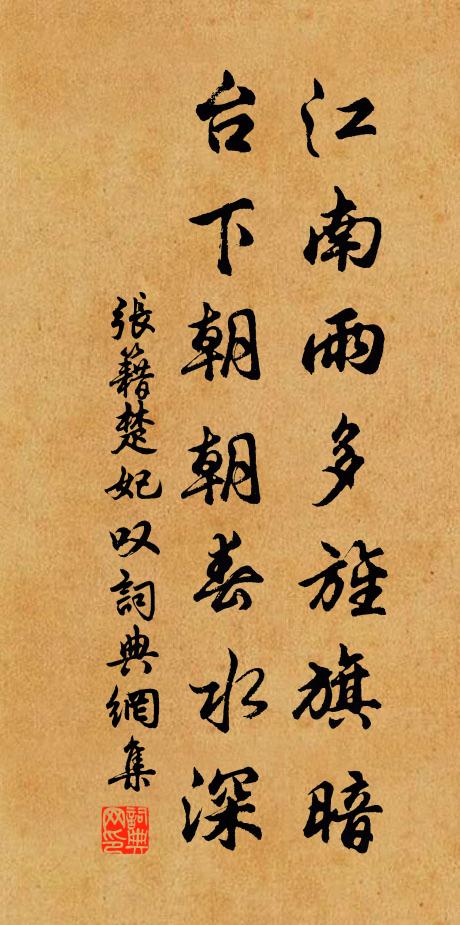 江南雨多旌旗暗
台下朝朝春水深
張籍楚妃叹詞典網集
詞典网印